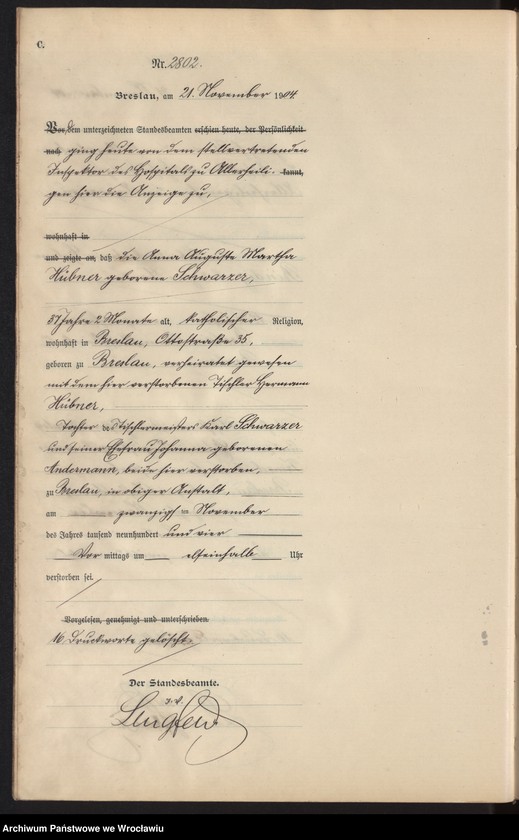 C.
Nr. 2802.
Breslau, am 21. November 1904.
Vor dem unterzeichneten Standesbeamten erschien heute, der Persönlichkeit
nach ging heute von dem stellvertretenden
Inspektor des Hospitals zu Allerheili- kannt,
gen hier die Anzeige zu,
wohnhaft in
und zeigte an, daß die Anna Auguste Martha
Hübner geborene Schwarzer,
57 Jahre 2 Monate alt, katholischer Religion,
wohnhaft in Breslau, Ottostraße 35,
geboren zu Breslau, verheiratet gewesen
mit dem hier verstorbenen Tischler Hermann
Hübner,
Tochter des Tischlermeisters Karl Schwarzer
und seiner Ehefrau Johanna geborenen
Andermann, beide hier verstorben,
zu Breslau, in obiger Anstalt,
am zwanzigsten November
des Jahres tausend neunhundert und vier
Vor mittags um elfeinhalb Uhr
verstorben sei.
Vorgelesen, genehmigt und unterschrieben.
16 Druckworte gelöscht.
Der Standesbeamte.
I.V.
Archiwum Państwowe we Wrocławiu